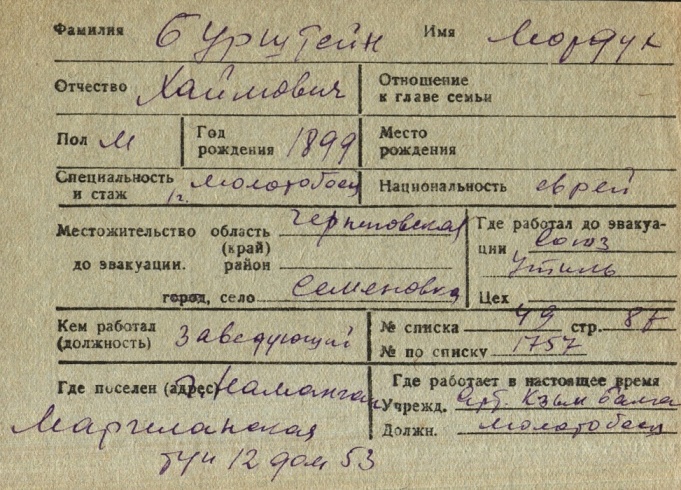 Фамилия Бурштейн Имя Мордух
Отчество Хаймович Отношение к главе семьи
Пол М Год рождения 1899 Место рождения
Специальность и стаж 1г. молотобоец Национальность еврей
Местожительство до эвакуации. область (край) Черниговская
район
город, село Семеновка
Где работал до эвакуации Союз
утиль
Цех
Кем работал (должность) Заведующий
№ списка 49 стр. 87
№ по списку 1757
Где поселен (адрес) г. Наманган
Маргеланская
туп 12 дом 53
Где работает в настоящее время
Учрежд. Арт. Кзыл
Должн. молотобоец